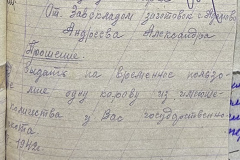 От Завокладом заготовок с.
Андреева Александра
Прошение
Выдать на временное пользо-
ние одну корову из имеюще-
количества у Вас государственно
ста
1942г